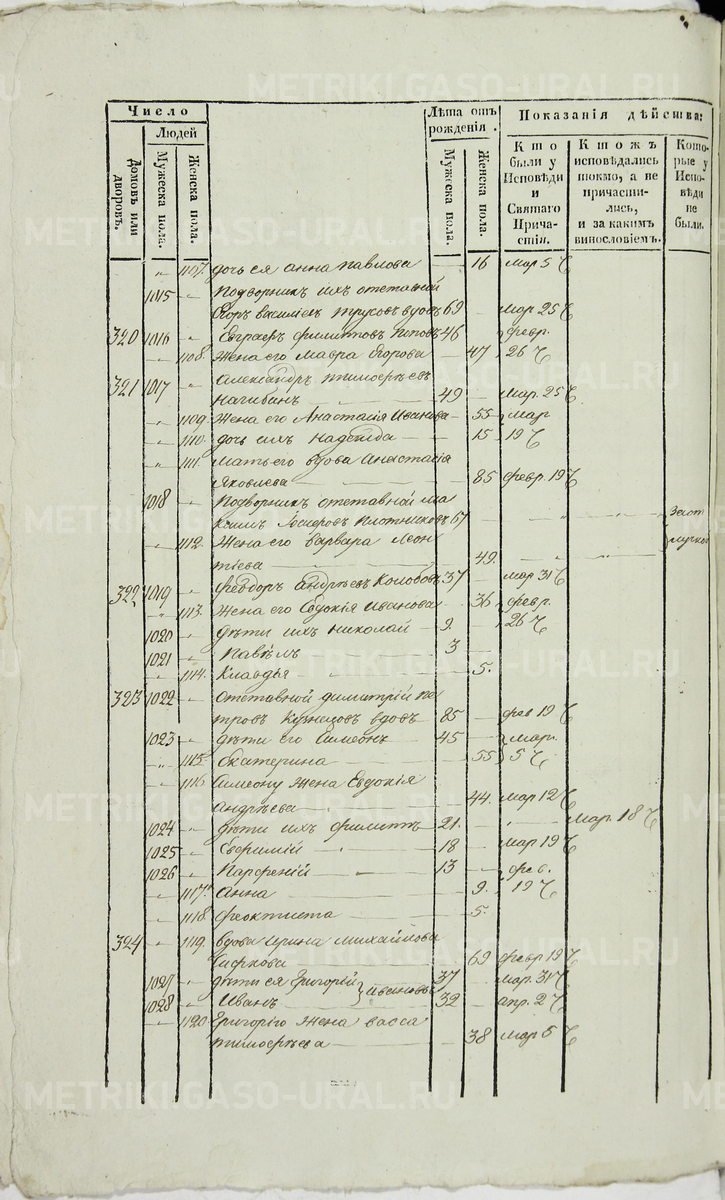 METRIKI.GASO-URAL.RU
Число
Людей
Домовъ или дворовъ.
Мужеска пола.
Женска пола.
Лѣта отъ рожденія.
Мужеска пола.
Женска пола.
Показанія дѣйства:
Кто были у Исповѣди и Святаго Причастія.
Ктожъ исповѣдались токмо, а не причастились, и за какимъ винословіемъ.
Которые у Исповѣди не были.
1107. дочь ея Анна Павлова 16 мар 5
1015 Подворникъ ихъ отставной
Егоръ Василіевъ Трусовъ вдовъ 69 мар 25
320 1016 Евграфъ Филиттовъ Поповъ 46 февр.
1108. Жена его Мавра Егорова 47 26
321 1017 Александръ Тимофѣевъ
Нагибинъ 49 мар. 25
1109. Жена его Анастасія Иванова 55 мар
1110. дочь ихъ Надежда 15 19
1111. мать его вдова Анастасія
Яковлева 85 февр. 19
1018 Подворникъ отставной Ма
ксимъ Плотниковъ 67
1112. Жена его Варвара Леон
тіева 49.
322 1019 Феодоръ Андрѣевъ Колобовъ 37 мар 31
1113. Жена его Евдокія Иванова 36 февр.
1020 дѣти ихъ Николай 9. 26
1021 Павелъ 3
1114. Клавдія 5.
323 1022 Отставной Димитрій Пе
тровъ Кузнецовъ вдовъ 85 фев 19
1023 дѣти его Симеонъ 45 мар.
1115. Екатерина 55 5
1116 Симеону жена Евдокія
Андрѣева 44. мар 12
1024 дѣти ихъ Филиппъ 21. мар. 18
1025 Евфимій 18 мар 19
1026 Парфеній 13 фев.
1117. Анна 9. 19
1118. Феоктиста 5.
324 1119. вдова Ирина Михайлова
69 февр 19
1027 дѣти ея Григорій Ивановы 37 мар. 31
1028 Иванъ 32 апр. 2
1120 Григорію жена Васса
Тимофѣева 38 мар 5